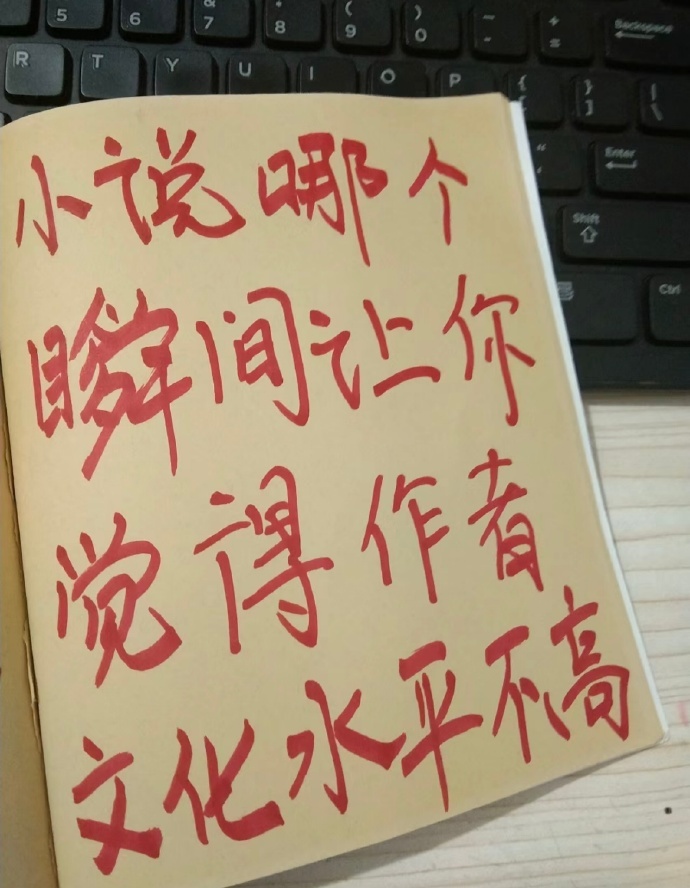 5 6 & 7 * 8 ( 9 ) 0 - + = Backspace
R T Y U I O P { [ } ] | \
" Enter
Shift
Ctrl
小说哪个
瞬间让你
觉得作者
文化水平不高